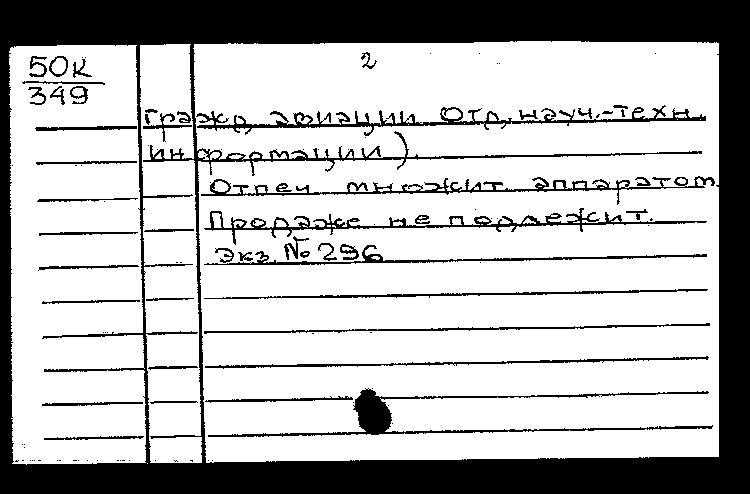 50к
349
2
гражд. авиации. Отд. науч.-техн.
информации).
Отпеч. множит. аппаратом.
Продаже не подлежит.
Экз. № 296